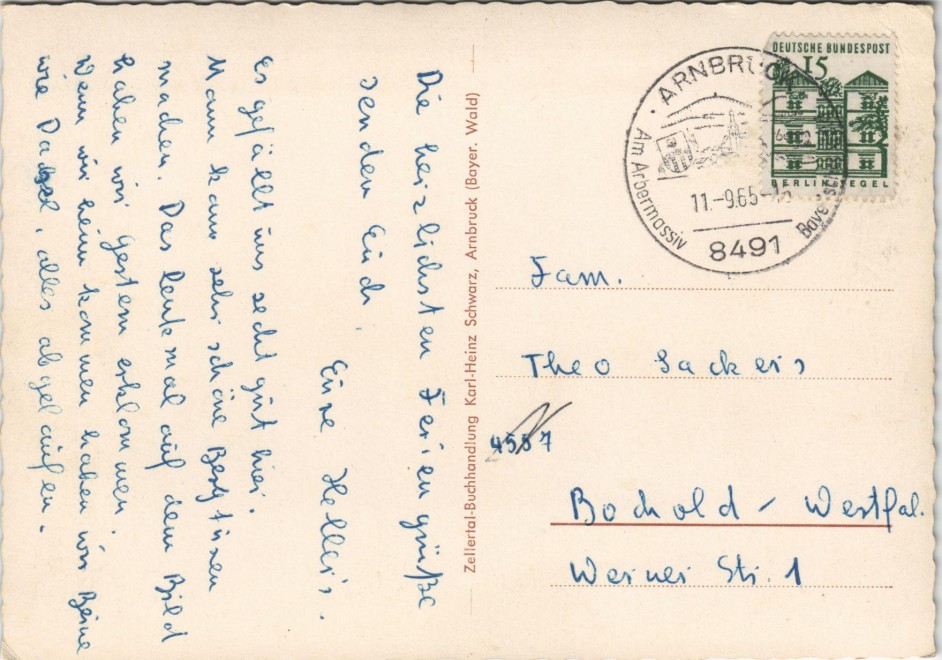 Die herzlichsten Feriengrüße
senden Euch
Eure Hellers.
Es gefällt uns recht gut hier.
Mann kann sehr schöne Bergturen
machen. Das Denkmal auf dem Bild
haben wir gestern erklommen.
Wenn wir heim kommen haben wir Beine
wie alles abgelaufen.
Zellertal-Buchhandlung Karl-Heinz Schwarz, Arnbruck (Bayer. Wald)
DEUTSCHE BUNDESPOST
15
BERLIN TEGEL
ARNBRUCK
Am Arbermassiv
11.-9.65-15
8491
Fam.
Theo Sackers
4557
Bochold - Westfal.
Werner Str. 1